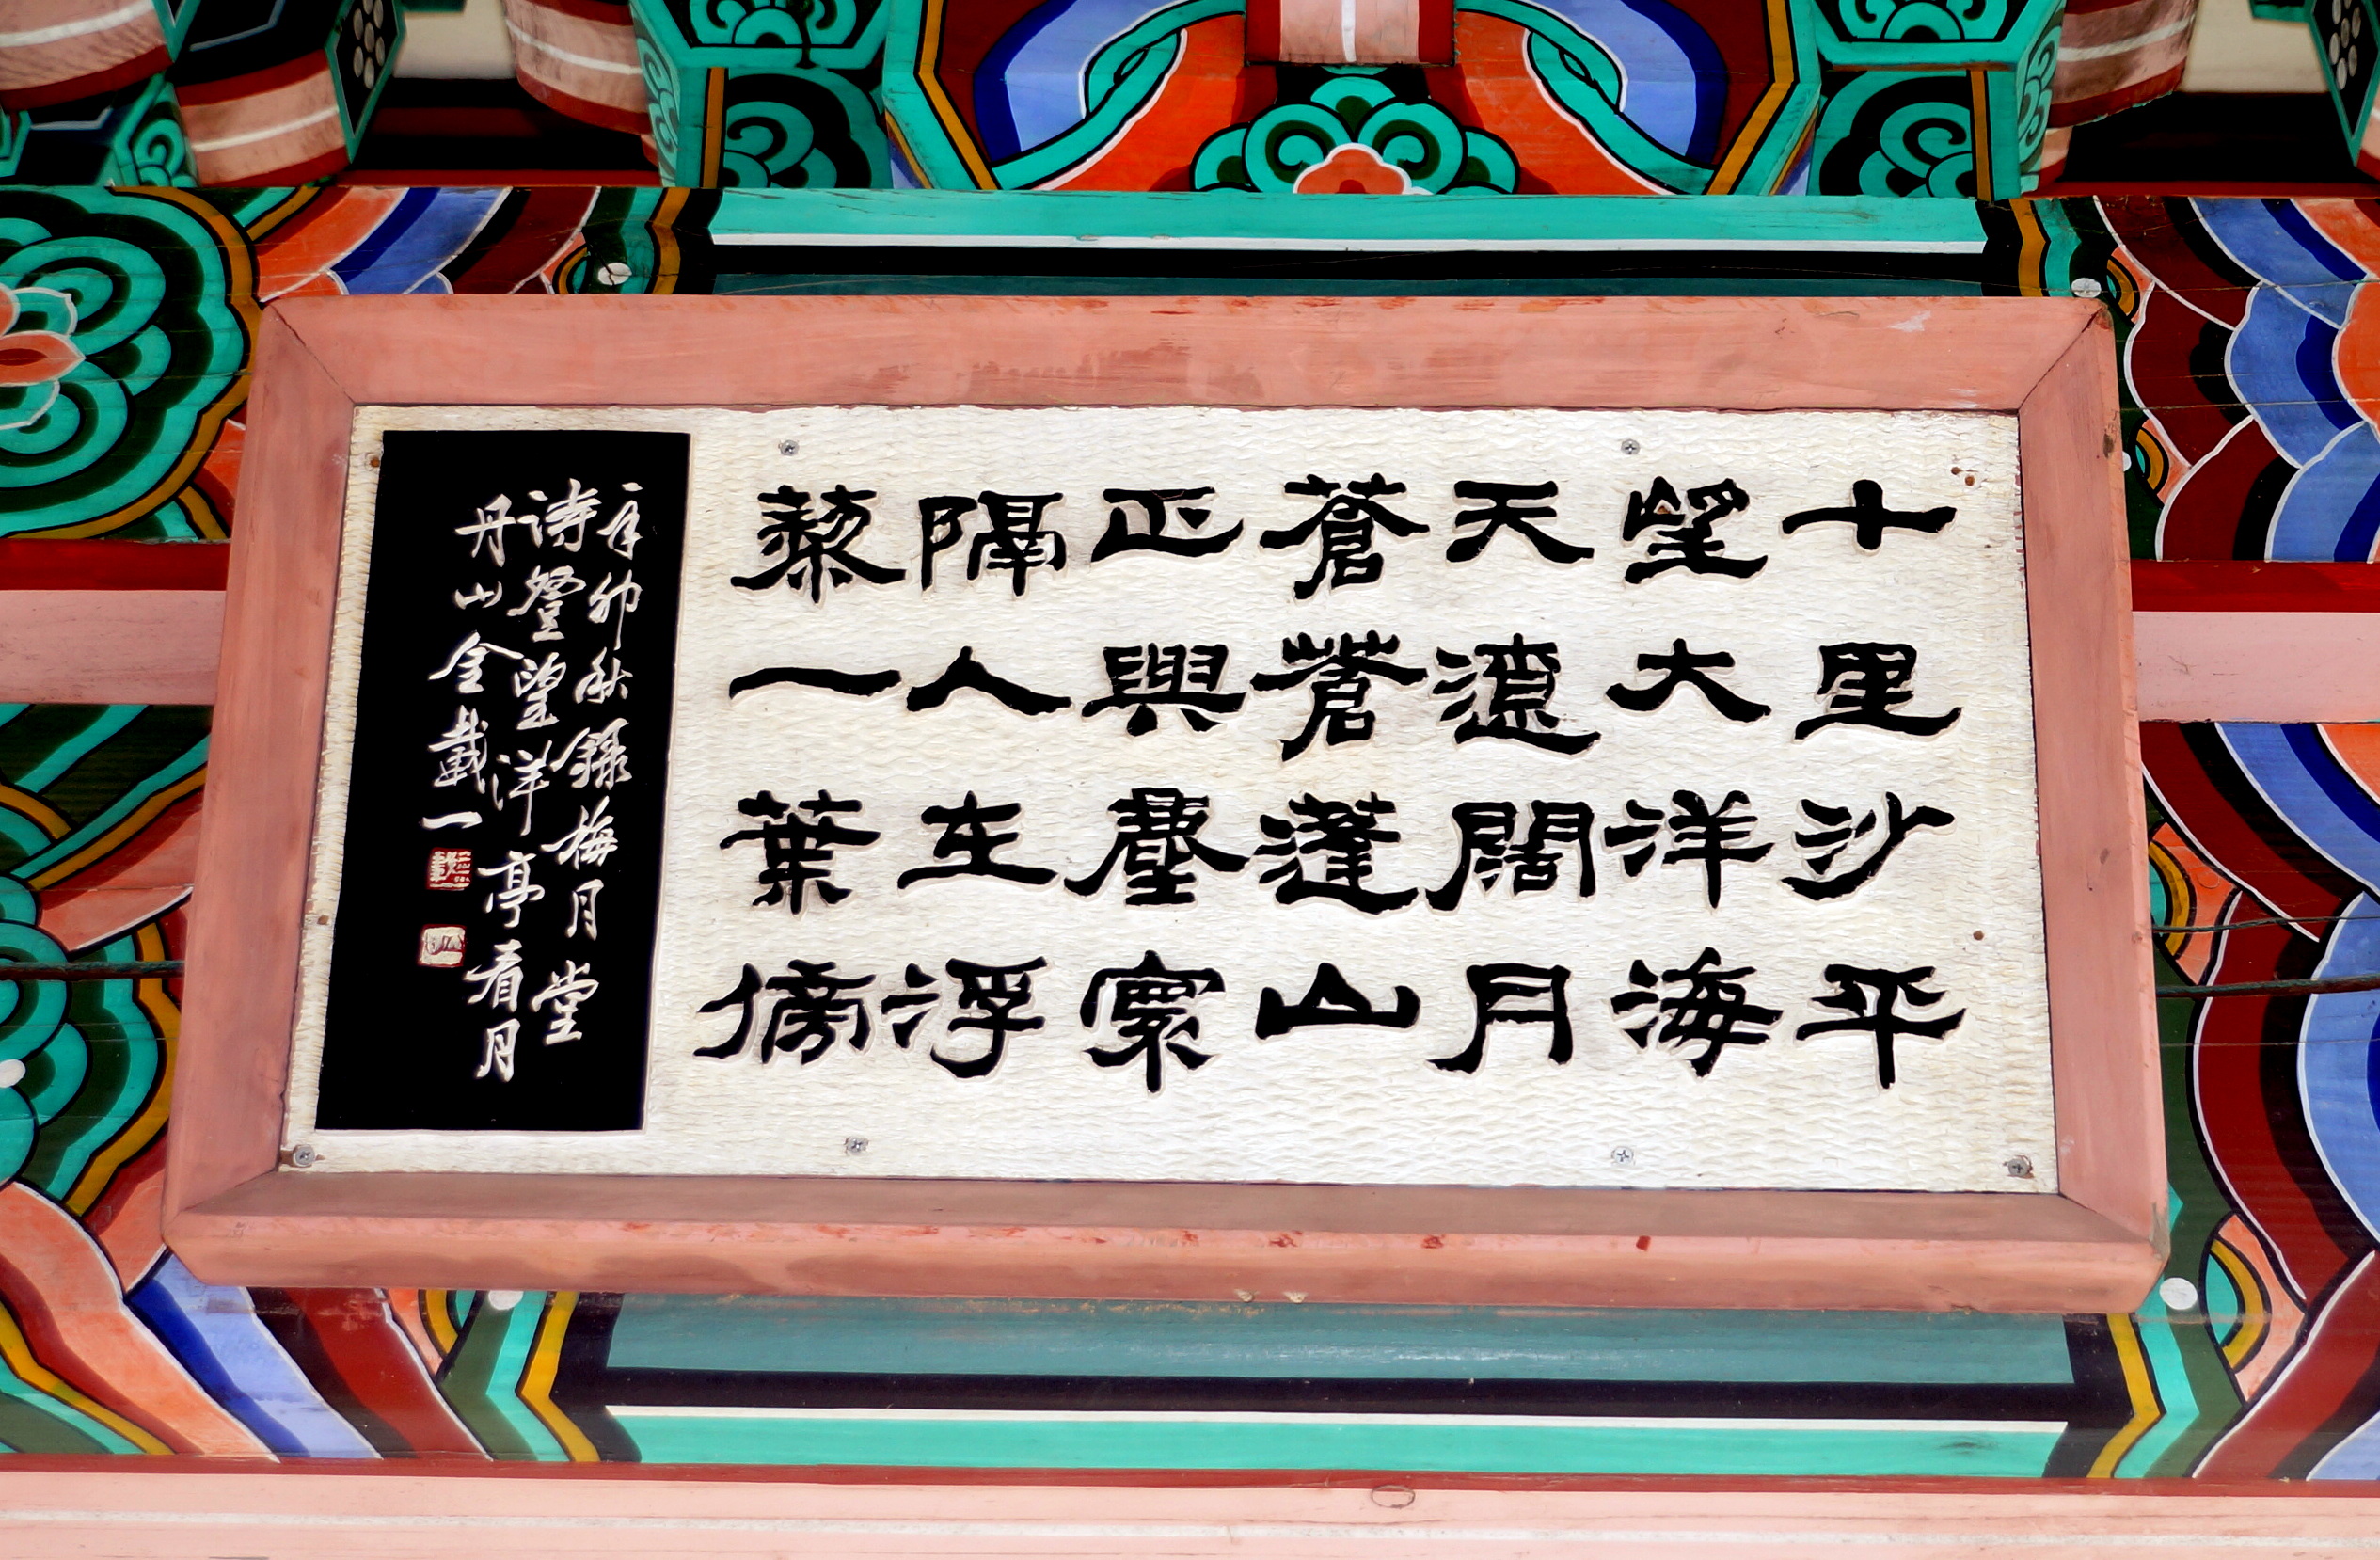 十里沙平
望大洋海
天遼闊月
蒼蒼蓬山
正與塵寰
隔人在浮
藜一葉傍
辛卯秋錄梅月堂
詩登望洋亭看月
丹山金載一